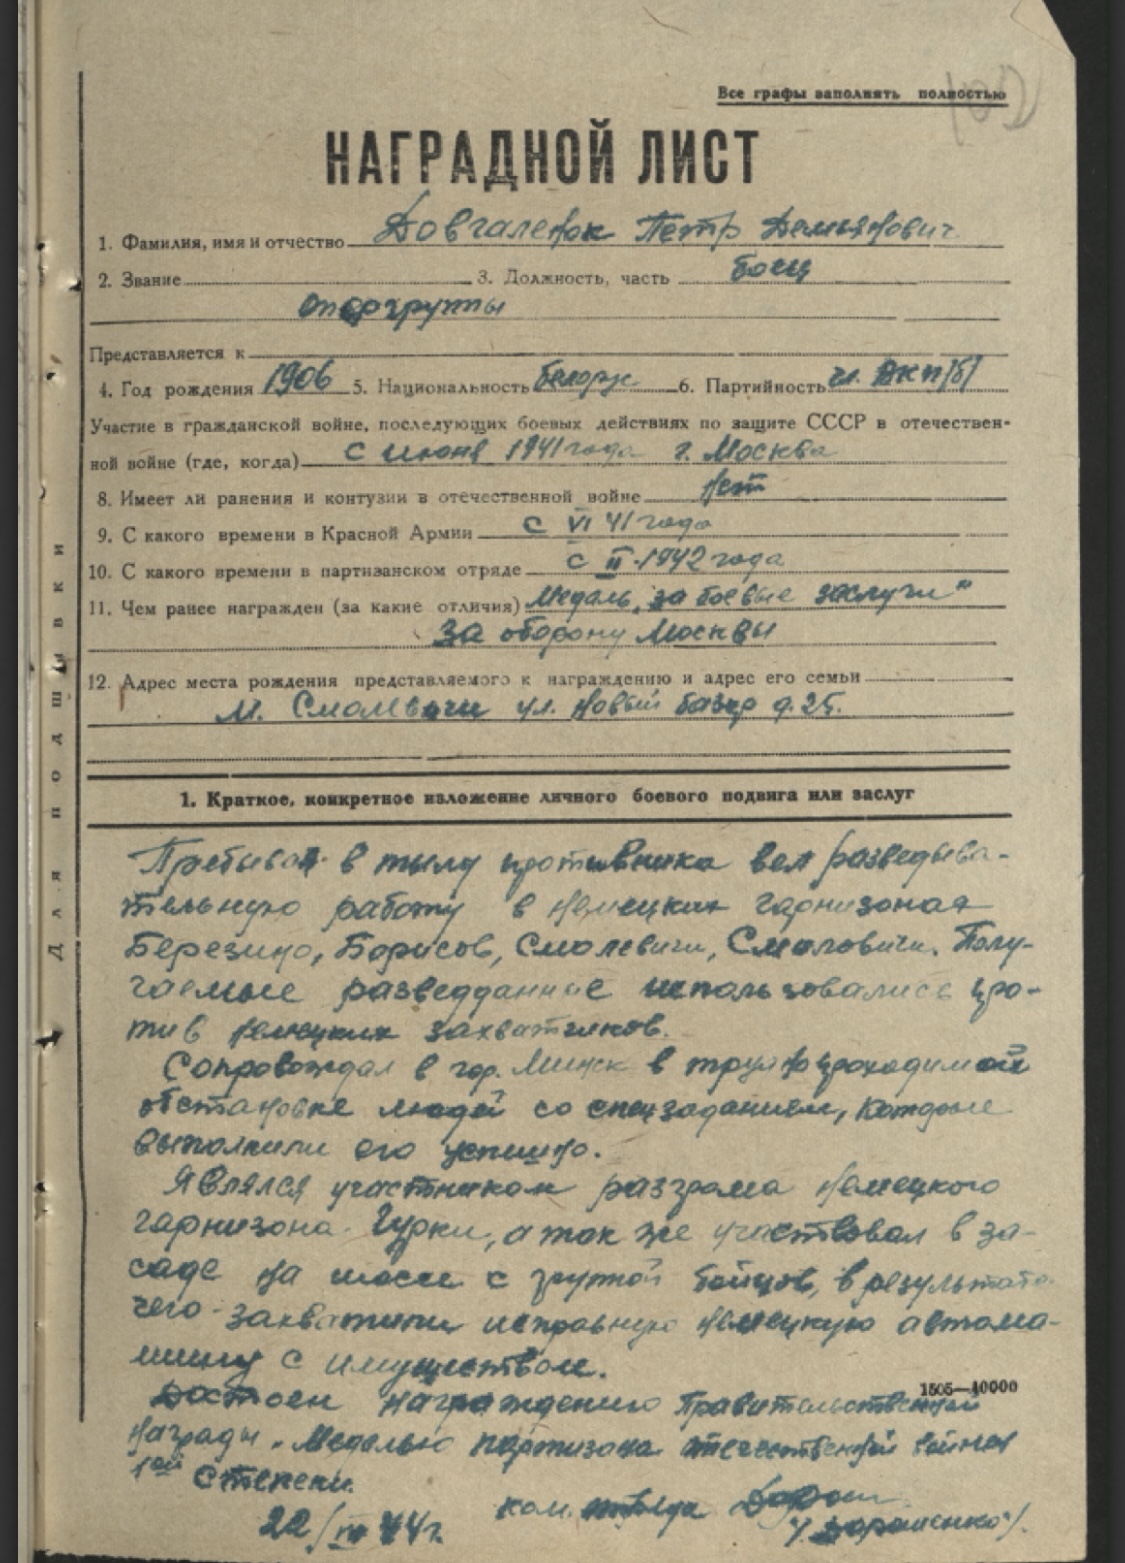 Все графы заполнять полностью
НАГРАДНОЙ ЛИСТ
1. Фамилия, имя и отчество Довгаленок Петр Демьянович
2. Звание 3. Должность, часть боец
опергруппы
Представляется к
4. Год рождения 1906 5. Национальность белорус 6. Партийность чл. ВКП(б)
Участие в гражданской войне, последующих боевых действиях по защите СССР в отечествен-
ной войне (где, когда) с июня 1941 года г. Москва
8. Имеет ли ранения и контузии в отечественной войне нет
9. С какого времени в Красной Армии с VI 41 года
10. С какого времени в партизанском отряде с II. 1942 года
11. Чем ранее награжден (за какие отличия) Медаль "за боевые заслуги"
За оборону Москвы
12. Адрес места рождения представляемого к награждению и адрес его семьи
м. Смолевичи ул. Новый базар д. 25.
Для подшивки
1. Краткое, конкретное изложение личного боевого подвига или заслуг
Пребывая в тылу противника вел разведыва-
тельную работу в немецких гарнизонах
Березино, Борисов, Смолевичи, Смиловичи. Полу-
чаемые разведданные использовались про-
тив немецких захватчиков.
Сопровождал в гор. Минск в труднопроходимой
обстановке людей со спецзаданием, которые
выполнили его успешно.
Являлся участником разгрома немецкого
гарнизона Гурки, а так же участвовал в за-
саде на шоссе с группой бойцов, в результате
чего захватили исправную немецкую автома-
шину с имуществом.
Достоен награждению Правительственной
награды. Медалью партизана отечественной войны
1ой степени.
1505—40000
22/IV 44 г. ком. отряда
/Дорошенко/.